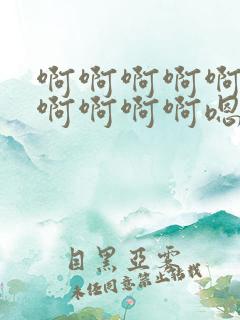 啊啊啊啊啊
啊啊啊啊嗯
目黑亚雾
未经同意禁止转载